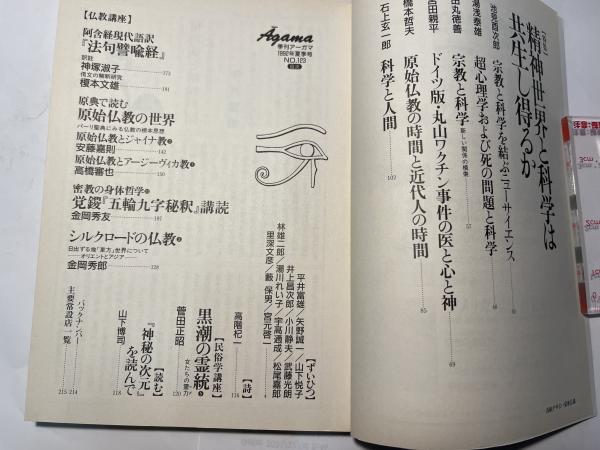 【特集】
精神世界と科学は
共生し得るか
池見酉次郎
宗教と科学を結ぶニューサイエンス
湯浅泰雄
超心理学および死の問題と科学
田丸徳善
宗教と科学
新しい関係の模索
57
宮田親平
ドイツ版・丸山ワクチン事件の医と心と神
69
橋本哲夫
原始仏教の時間と近代人の時間
85
石上玄一郎
科学と人間
107
Āgama
季刊アーガマ
1992年夏季号
NO.123
目次
【仏教講座】
阿含経現代語訳
『法句譬喩経』
訳註
神塚淑子
173
偈文の解析研究
榎本文雄
181
原典で読む
原始仏教の世界
パーリ聖典にみる仏教の根本思想
原始仏教とジャイナ教
安藤嘉則
142
原始仏教とアージーヴィカ教
高橋審也
150
密教の身体哲学
覚鑁『五輪九字秘釈』講読
金岡秀友
197
シルクロードの仏教
日出ずる地「東方」世界について
―オリエントとアジア―
金岡秀郎
128
【ずいひつ】
平井富雄/矢野誠一/山下悦子
井上昌次郎/小川静夫/武藤光朗
林雄二郎/湯川れい子/宇高通成/松尾嘉郎
里深文彦/藪 保男/宮元啓一
【詩】
高階杞一
116
【民俗学講座】
黒潮の霊統
女たちの霊力
菅田正昭
120
【読む】
『神秘の次元』
を読んで
山下博司
118
バックナンバー
214
主要常設店一覧
215